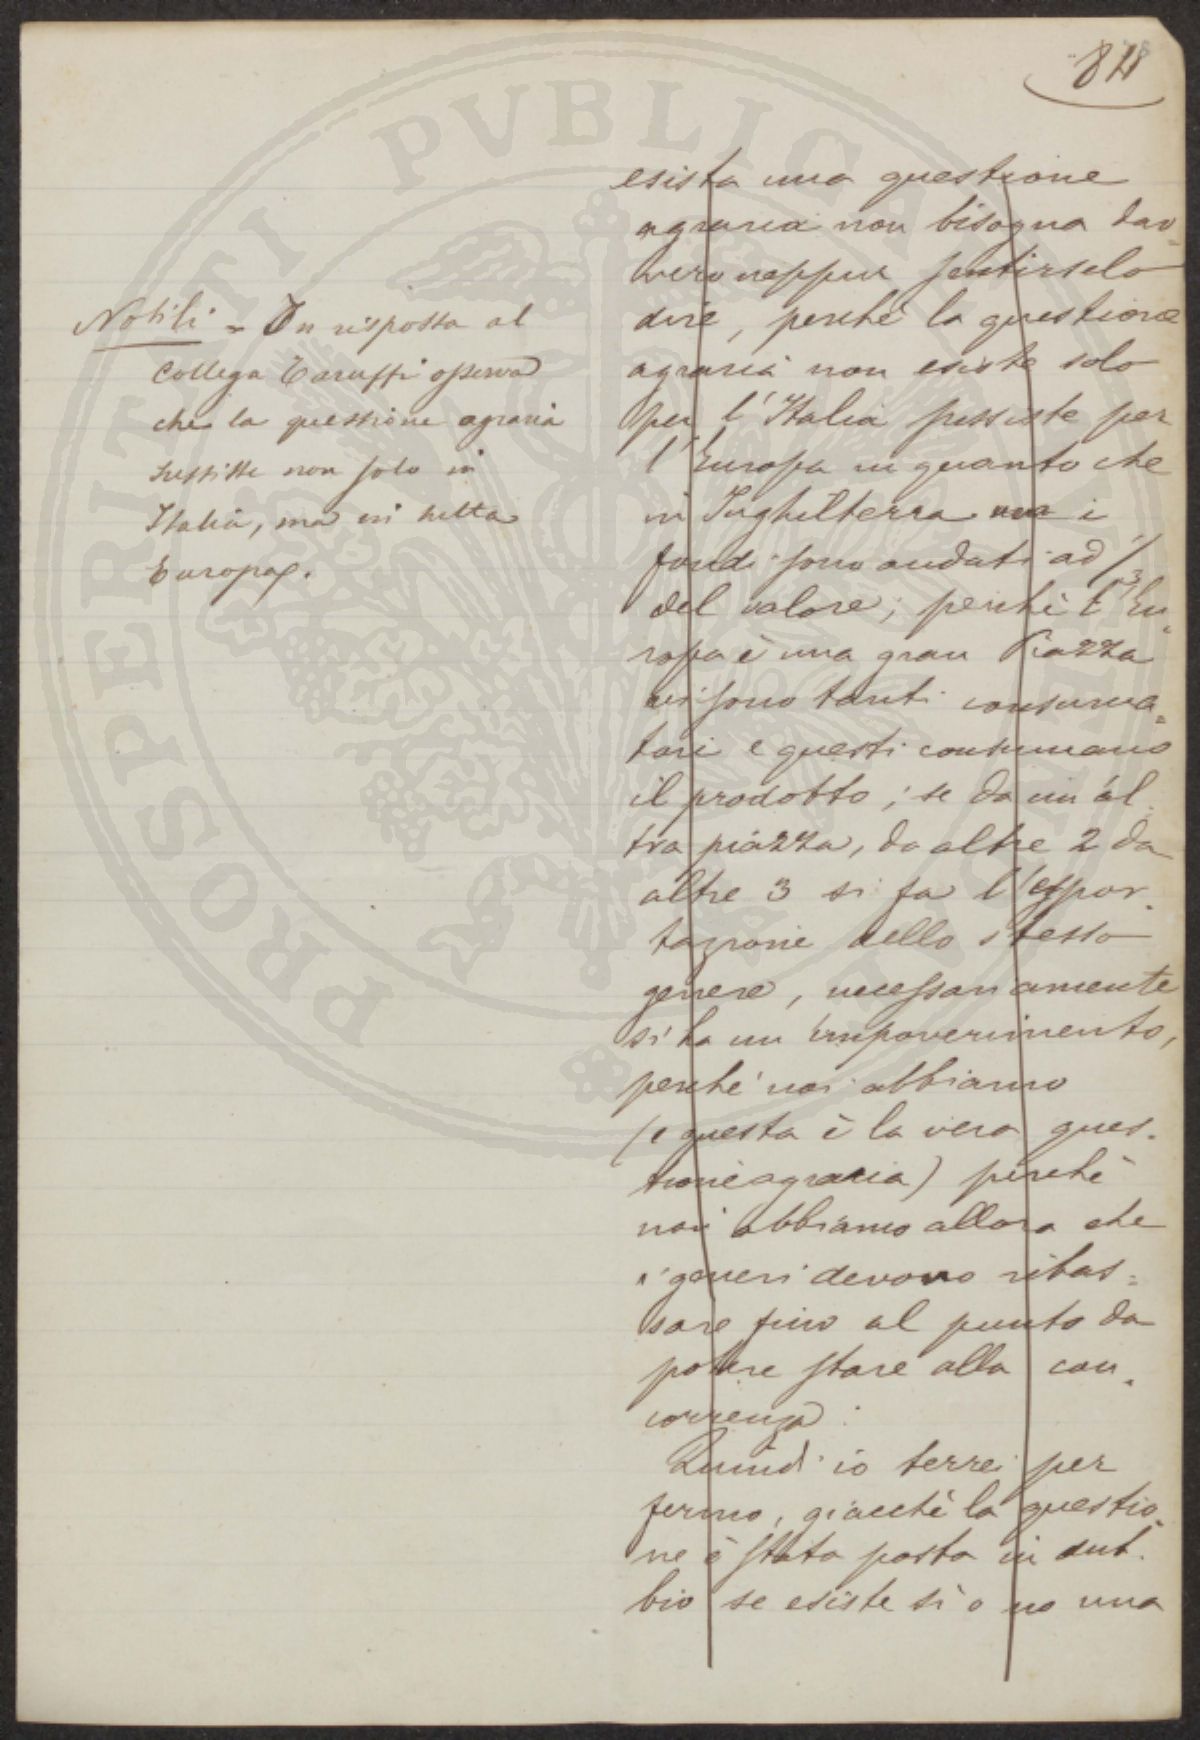 esista una questione
agraria non bisogna dav=
vero neppur sentirselo
dire, perchè la questione
agraria non esiste solo
per l'Italia sussiste per
l'Europa in quanto che
in Inghilterra i
fondi sono andati ad 1/3
del valore; perchè l'Eu=
ropa è una gran Piazza
vi sono tanti consuma=
tori e questi consumano
il prodotto; se da un al
tra piazza, da altre 2 da
altre 3 si fa l'espor=
tazione dello stesso
genere, necessariamente
si ha un impoverimento,
perchè noi abbiamo
(e questa è la vera ques=
tione agraria) perchè
noi abbiamo allora che
i generi devono ribas=
sare fino al punto da
potere stare alla con=
correnza.
Quindi io terrei per
fermo, giacchè la questio=
ne è stata posta in dub=
bio se esiste sì o no una
Nobili = In risposta al
Collega Taruffi osserva
che la questione agraria
sussiste non solo in
Italia, ma in tutta
Europa.
PROSPERITATI PVBLICAE